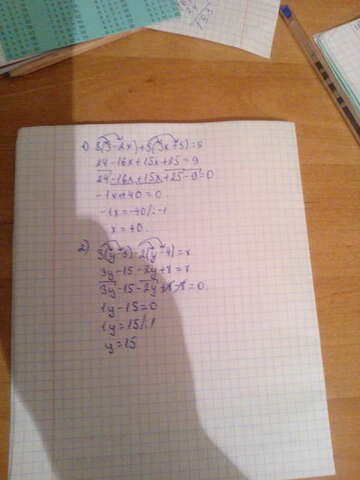 1) 8(3-2x)+5(3x+5)=9
24-16x+15x+25=9
24-16x+15x+25-9=0
-1x+40=0
-1x=-40/:-1
x=40
2) 3(y-5)-2(y-4)=8
3y-15-2y+8=8
3y-15-2y+8-8=0
1y-15=0
1y=15/:1
y=15